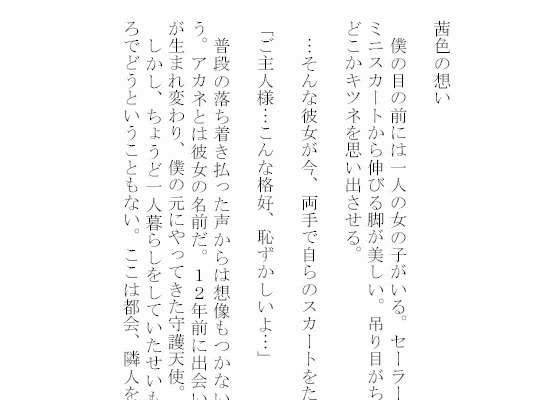 茜色の想い
　僕の目の前には一人の女の子がいる。セーラー
ミニスカートから伸びる脚が美しい。吊り目がち
どこかキツネを思い出させる。
　…そんな彼女が今、両手で自らのスカートをた
「ご主人様…こんな格好、恥ずかしいよ…」
　普段の落ち着き払った声からは想像もつかない
う。アカネとは彼女の名前だ。１２年前に出会い
が生まれ変わり、僕の元にやってきた守護天使。
　しかし、ちょうど一人暮らしをしていたせいも
ろでどうということもない。ここは都会、隣人を